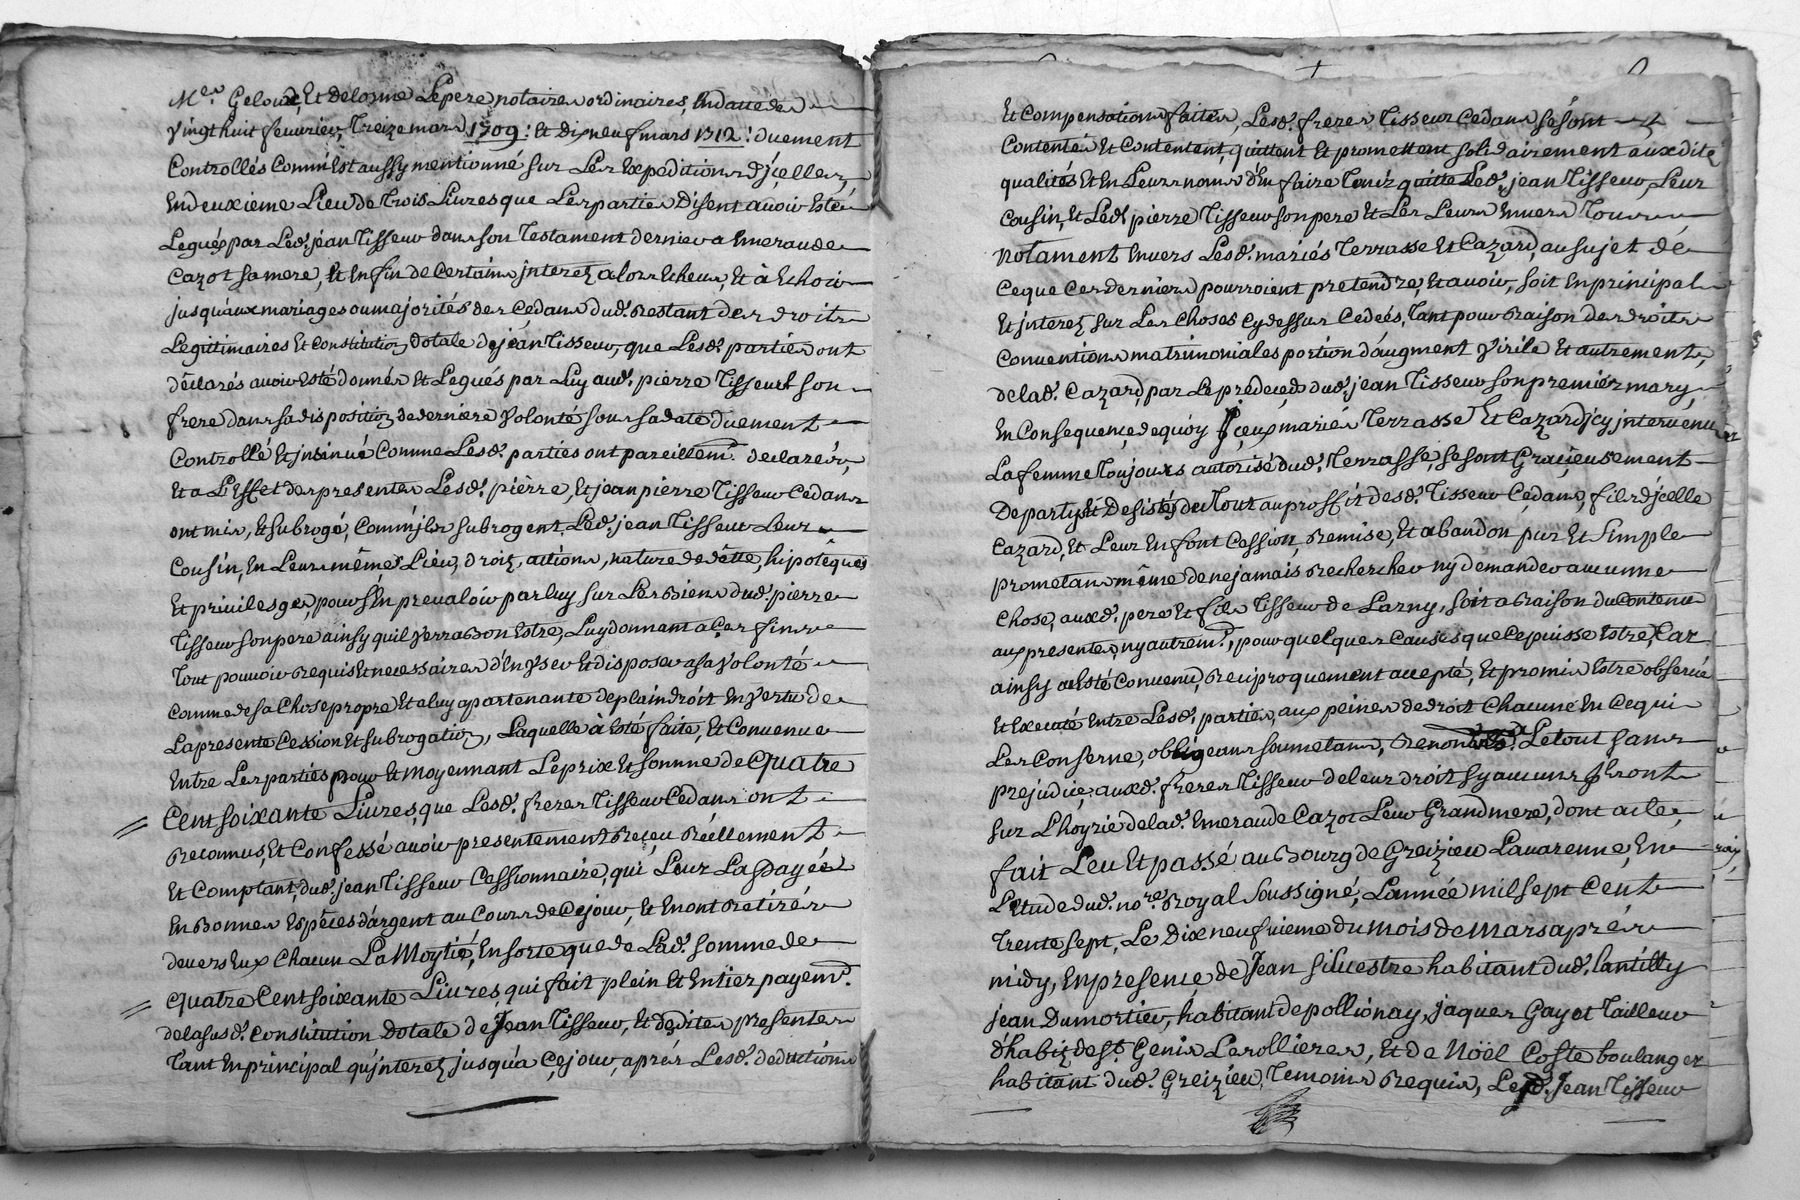 Mes. Geloux, Et delorme Lepere notaires ordinaires, En datte des
vingt huit feuvrier, Treize mars 1709: et dixneuf mars 1712: duement
Controllés Comm'Est aussy mentionné sur Les Expeditions d'jcelles,
En deuxieme Lieu de Trois Liures que Les parties Disent auoir Esté
Legués par Led. jean Tisseur dans son Testament dernier a Emeraude
Cazot sa mere, Et Enfin de Certains jnterez alors Echeus, Et à Echoir
jusqu'aux mariages ou majorités des Cedans dud. Restant des droits
Legitimaires Et Constitution dotale de jean Tisseur, que Lesd. parties ont
déclarés auoir Esté donnés Et Legués par Luy aud. pierre Tisseur son
frere dans sa disposition de derniere Volonté sous sa date duement
Controllé Et jnsinué Comme Lesd. parties ont pareillemt. declarés,
Et a L'Effet des presentes Lesd. pierre, Et jean pierre Tisseur Cedans
ont mis, Et subrogé, Comm'jls subrogent Led. jean Tisseur Leur
Cousin, En Leurs même Lieu, droiz, actions, nature de dêtte, hipotêques
Et priuileges, pour s'En preualoir par luy sur Les Biens dud. pierre
Tisseur son pere ainsy quil verra Bon Estre, Luy donnant a Ces fins
Tout pouuoir Requis Et necessaires d'En Vser Et disposer a sa Volonté
Comme de sa Chose propre Et a luy apartenante de plain droit En Vertu de
La presente Cession Et subrogation, Laquelle à Esté faite, Et Conuenue
Entre Les parties pour Et moyennant Le prix Et somme de Quatre
Cent soixante Liures, que Lesd. freres Tisseur Cedans ont
Reconnus, Et Confessé auoir presentement Reçeu Réellement
Et Comptant, dud. jean Tisseur Cessionnaire, qui Leur La payée
En Bonnes Espêces d'argent au Cours de Cejour, Et En ont Retirés
deuers Eux Chacun La Moytié, En sorte que de Lad. somme de
Quatre Cent soixante Liures, qui fait plein Et Entier payemt.
de la susd. Constitution Dotale de Jean Tisseur, Et desdites presentes
Tant En principal qu'jnterez jusqu'a Cejour, aprés Lesd. deductions
Et Compensations faites, Lesd. freres Tisseur Cedans se sont
Contentés Et Contentent, quittent Et promettent solidairement auxdites
qualités Et En Leurs noms d'En faire Tenir quitte Led. jean Tisseur, Leur
Cousin, Et Led. pierre Tisseur son pere Et Les Leurs Enuers Tous
notament Enuers Lesd. mariés Terrasse Et Cazard, au sujet dé
Ce que Ces derniers pourroient pretendre, Et auoir, soit En principal
Et jnterez sur Les Choses Cydessus Cedées, Tant pour Raison des droits
Conuentions matrimoniales portion d'augment Virile Et autrement,
de lad. Cazard, par Le predeçed dud. jean Tisseur son premier mary,
En Consequençe de quoy jçeux mariés Terrasse Et Cazard jcy jnteruenus
La femme Toujours autorisé dud. Terrasse, se sont Graçieusement
Departys Et Desistés du Tout au proffit desd. Tisseur Cedans, fils d'jcelle
Cazard, Et Leur En font Cession, Remise, Et abandon pur Et simple
prometans même de ne jamais Rechercher ny demander aucunne
Chose, auxd. pere Et fils Tisseur de Larny, soit a Raison du Contenu
aux presentes, ny autremt., pour quelques Causes que Ce puisse Estre, Car
ainsy a Esté Conuenu, Reciproquement accepté, Et promis Estre obserué
Et Executé Entre Lesd. parties, aux peines de droit Chacune En Cequi
Les Conserne, obligeans soumetans, Renonceans. Le tout sans
prejudiçe auxd. freres Tisseur de leur droit sy aucuns jls ont
sur L'hoyrie de lad. Emeraude Cazot Leur Grandmere, dont acte,
fait Leu Et passé au Bourg de Greizieu Lauarenne, En
L'Etude dud. nore. Royal soussigné, L'année mil sept Cent
Trente sept, Le Dix neufuieme du mois de Mars aprés
midy, En presençe de Jean siluestre habitant dud. lantilly
jean Dumortier, habitant de pollionay, jaques Gayot Tailleur
d'habiz de st. Genis Lerollieres, Et de Nöël Coste boulanger
habitant dud. Greizieu, Temoins Requis, Led. Jean Tisseur